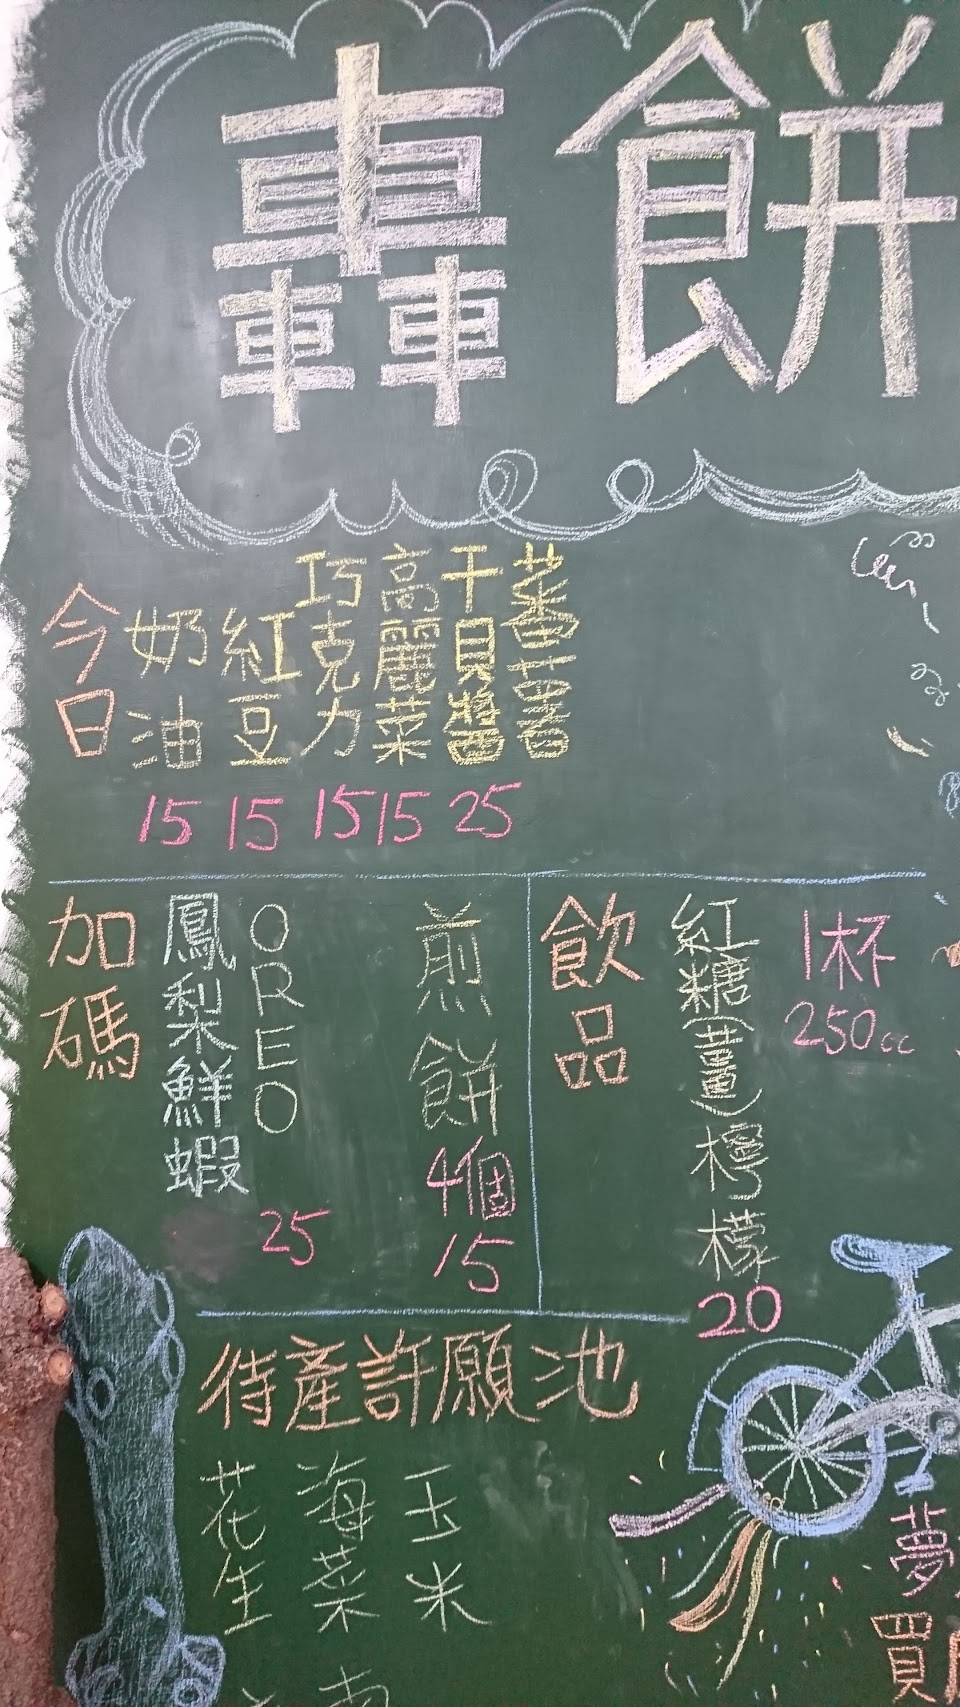 轟餅
今日
奶油
15
紅豆
15
巧克力
15
高麗菜
15
干貝醬
25
蕃薯
加碼
鳳梨鮮蝦
OREO
25
煎餅
4個
15
飲品
紅糖(薑)檸檬
20
1杯
250cc
待產許願池
花生
海菜
玉米
夢
買